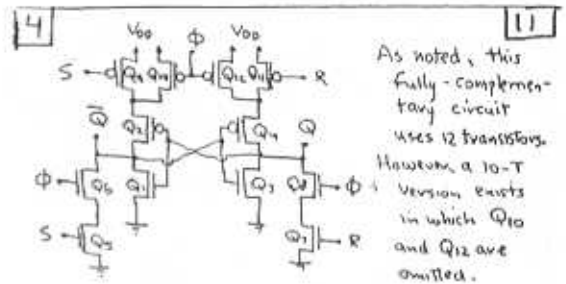 4
11
VDD Φ VDD
S Q9 Q10 Q12 Q11 R
Q2 Q4
Q̅ Q
Φ Q6 Q1 Q3 Q8 Φ
S Q5 Q7 R
As noted, this
fully-complemen-
tary circuit
uses 12 transistors.
However, a 10-T
version exists
in which Q10
and Q12 are
omitted.